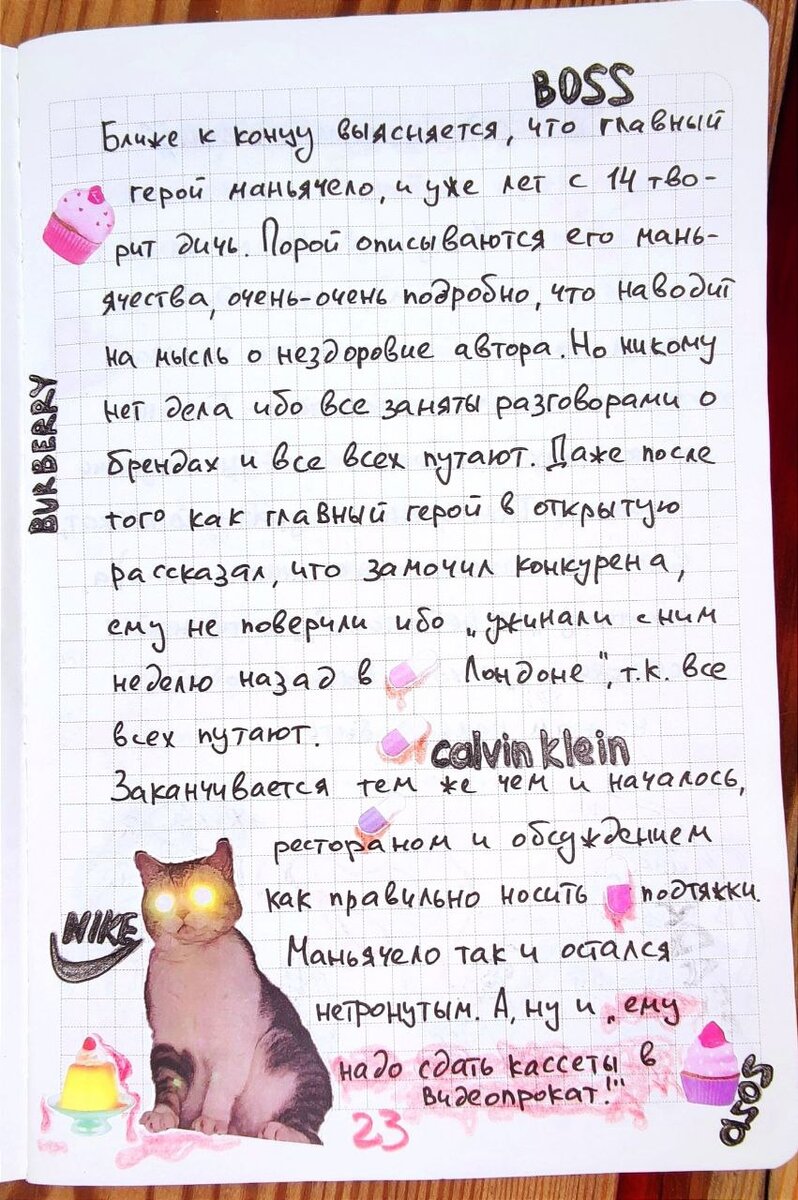 BOSS
Ближе к концу выясняется, что главный
герой маньячело, и уже лет с 14 тво-
рит дичь. Порой описываются его мань-
ячества, очень-очень подробно, что наводит
на мысль о нездоровие автора. Но никому
нет дела ибо все заняты разговорами о
брендах и все всех путают. Даже после
того как главный герой в открытую
рассказал, что замочил конкурена,
ему не поверили ибо „ужинали с ним
неделю назад в Лондоне", т.к. все
всех путают.
BURBERRY
calvin klein
Заканчивается тем же чем и началось,
рестораном и обсуждением
как правильно носить подтяжки.
NIKE
Маньячело так и остался
нетронутым. А, ну и „ему
надо сдать кассеты в
видеопрокат!"
asos
23